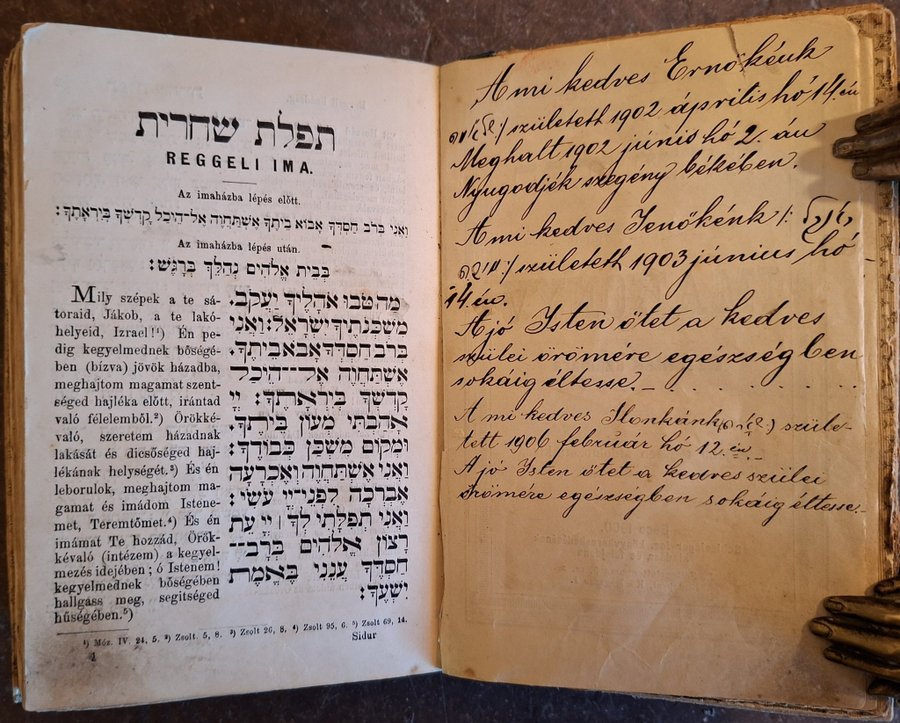 תפלת שחרית
REGGELI IMA.
Az imaházba lépés előtt.
וַאֲנִי בְּרֹב חַסְדְּךָ אָבוֹא בֵיתֶךָ אֶשְׁתַּחֲוֶה אֶל־הֵיכַל קָדְשְׁךָ בְּיִרְאָתֶךָ:
Az imaházba lépés után.
בְּבֵית אֱלֹהִים נְהַלֵּךְ בְּרָגֶשׁ:
Mily szépek a te sá-
toraid, Jákob, a te lakó-
helyeid, Izrael!¹) Én pe-
dig kegyelmednek bőségé-
ben (bízva) jövök házadba,
meghajtom magamat szent-
séged hajléka előtt, irántad
való félelemből.²) Örökké-
való, szeretem házadnak
lakását és dicsőséged haj-
lékának helységét.³) És én
leborulok, meghajtom ma-
gamat és imádom Istene-
met, Teremtőmet.⁴) És én
imámat Te hozzád, Örök-
kévaló (intézem) a kegyel-
mezés idejében; ó Istenem!
kegyelmednek bőségében
hallgass meg, segitséged
hűségében.⁵)
מַה־טֹּבוּ אֹהָלֶיךָ יַעֲקֹב.
מִשְׁכְּנֹתֶיךָ יִשְׂרָאֵל: וַאֲנִי
בְּרֹב חַסְדְּךָ אָבֹא בֵיתֶךָ.
אֶשְׁתַּחֲוֶה אֶל־הֵיכַל
קָדְשְׁךָ בְּיִרְאָתֶךָ: יְיָ
אָהַבְתִּי מְעוֹן בֵּיתֶךָ.
וּמְקוֹם מִשְׁכַּן כְּבוֹדֶךָ:
וַאֲנִי אֶשְׁתַּחֲוֶה וְאֶכְרָעָה
אֶבְרְכָה לִפְנֵי־יְיָ עֹשִׂי:
וַאֲנִי תְפִלָּתִי לְךָ ׀ יְיָ עֵת
רָצוֹן אֱלֹהִים בְּרָב־
חַסְדֶּךָ עֲנֵנִי בֶּאֱמֶת
יִשְׁעֶךָ:
¹) Móz. IV. 24, 5. ²) Zsolt. 5, 8. ³) Zsolt 26, 8. ⁴) Zsolt 95, 6. ⁵) Zsolt 69, 14.
4 Sidur
A mi kedves Ernőkénk
született 1902 április hó 14.én
Meghalt 1902 június hó 2. án
Nyugodjék szegény békében.
A mi kedves Jenőkénk /:
:/ született 1903 június hó
14 én.
A jó Isten őtet a kedves
szülei örömére egészségben
sokáig éltesse. –
A mi kedves Ilonkánk szüle-
tett 1906 február hó 12.én
A jó Isten őtet a kedves szülei
örömére egészségben sokáig éltesse. –